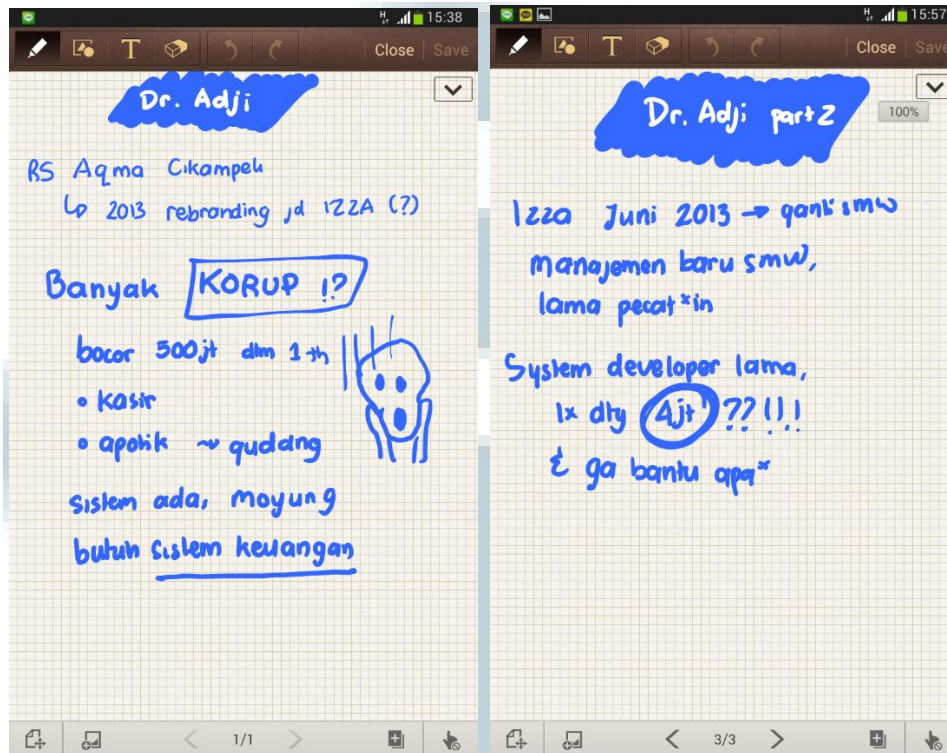 15:38
T
Close Save
Dr. Adji
RS Aqma Cikampek
↳ 2013 rebranding jd IZZA (?)
Banyak KORUP !?
bocor 500 jt dlm 1 th
• kasir
• apotik ~ gudang
sistem ada, moyung
butuh sistem keuangan
1/1
15:57
T
Close Save
100%
Dr. Adji part 2
Izza Juni 2013 → ganti smw
manajemen baru smw,
lama pecat*in
System developer lama,
1x dtg 4jt ??!!!
& ga bantu apa*
3/3